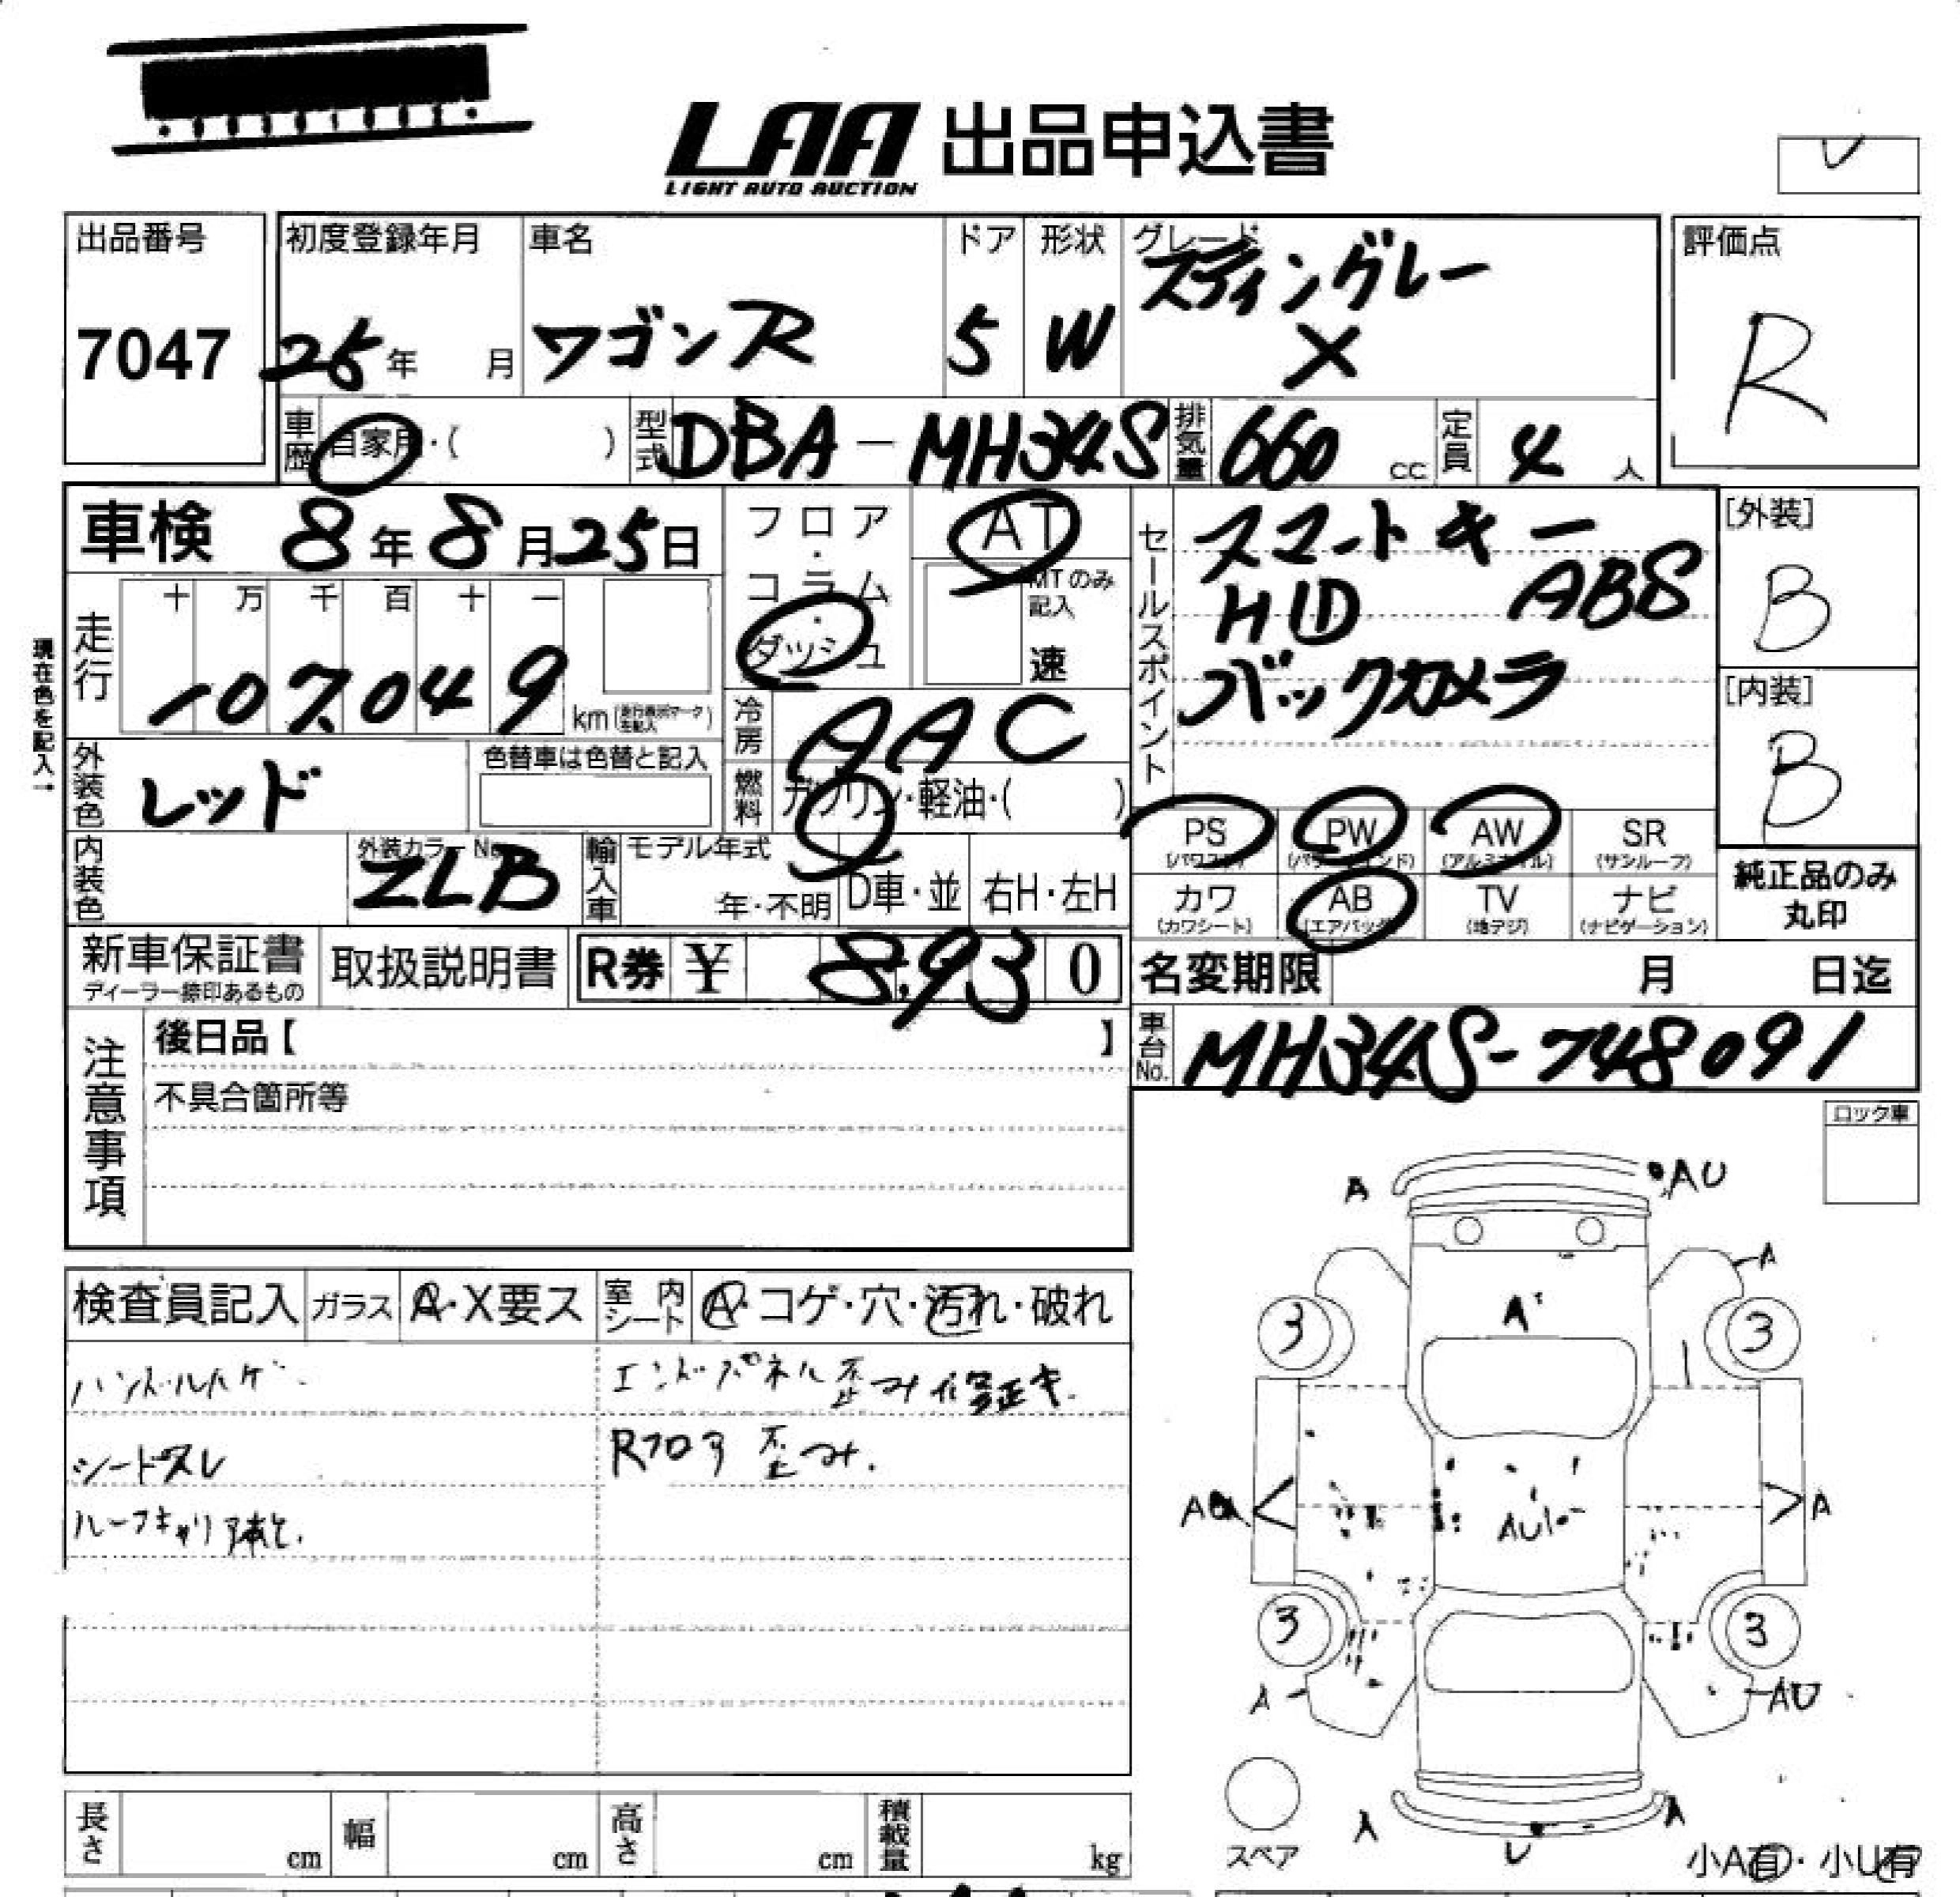 LAA 出品申込書
LIGHT AUTO AUCTION
出品番号
7047
初度登録年月
25年 月
車名
ワゴンR
ドア
5
形状
W
グレード
スティングレー
X
評価点
R
車歴 自家用・( )
型式 DBA-MH34S
排気量 660 cc
定員 4 人
車検 8年8月25日
フロア・コラム・ダッシュ
AT
MTのみ記入
速
セールスポイント
スマートキー
HID ABS
バックカメラ
[外装]
B
[内装]
B
現在色を記入→
走行
十 万 千 百 十 一
107,049 km
冷房 AAC
燃料 ガソリン・軽油・( )
外装色 レッド
色替車は色替と記入
内装色
外装カラーNo.
ZLB
輸入車
モデル年式
年・不明
D車・並
右H・左H
PS
(パワステ)
PW
(パワーウインド)
AW
(アルミホイル)
SR
(サンルーフ)
カワ
(カワシート)
AB
(エアバック)
TV
(地デジ)
ナビ
(ナビゲーション)
純正品のみ
丸印
新車保証書
ディーラー捺印あるもの
取扱説明書
R券 ¥ 8,930
名変期限 月 日迄
車台No. MH34S-748091
注意事項
後日品【 】
不具合箇所等
ロック車
検査員記入
ガラス A・X要ス
室内シート A・コゲ・穴・汚れ・破れ
ハンドルハゲ
シートスレ
エンドパネル歪み修正キ.
Rフロア 歪み.
A AU
A
A'
3 3
A A
3 3
A AU
A A
U
スペア
小A有・小U有
長さ cm
幅 cm
高さ cm
積載量 kg